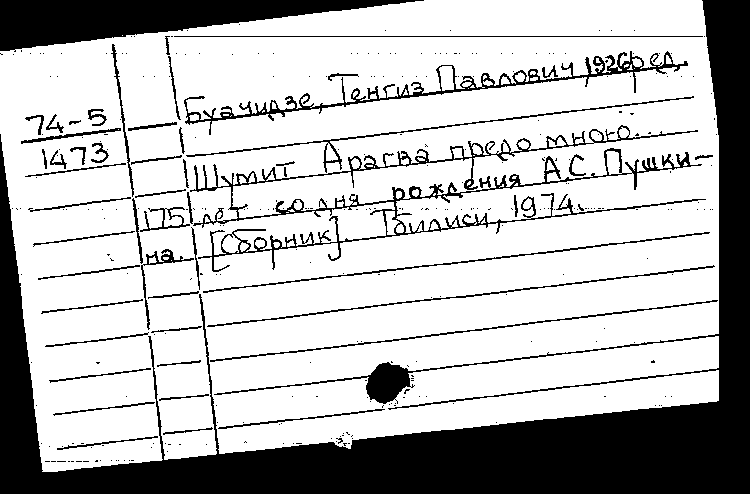 Буачидзе, Тенгиз Павлович, 1926, ред.
74-5
1473
Шумит Арагва предо мною...
175 лет со дня рождения А.С. Пушки-
на. [Сборник]. Тбилиси, 1974.